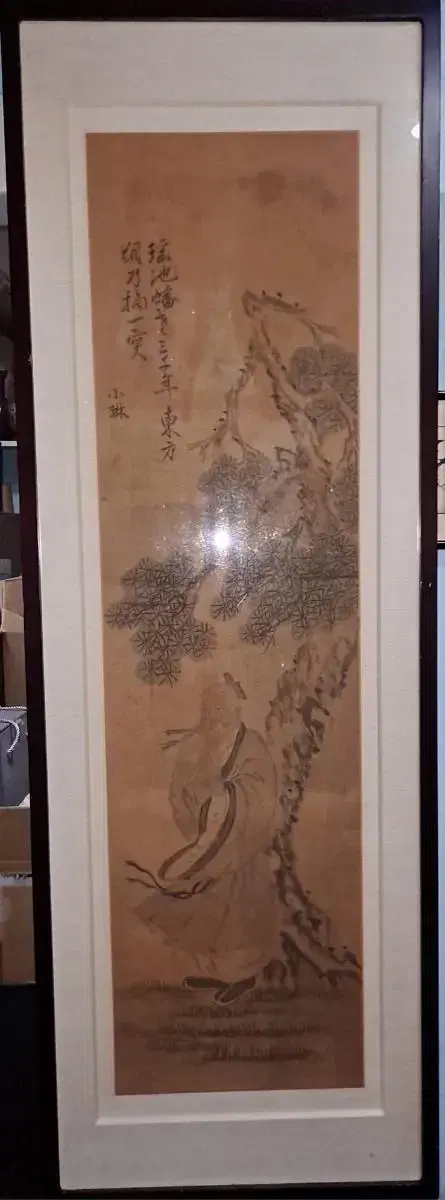 瑤池蟠三千年 東方
朔乃摘一實
小琳